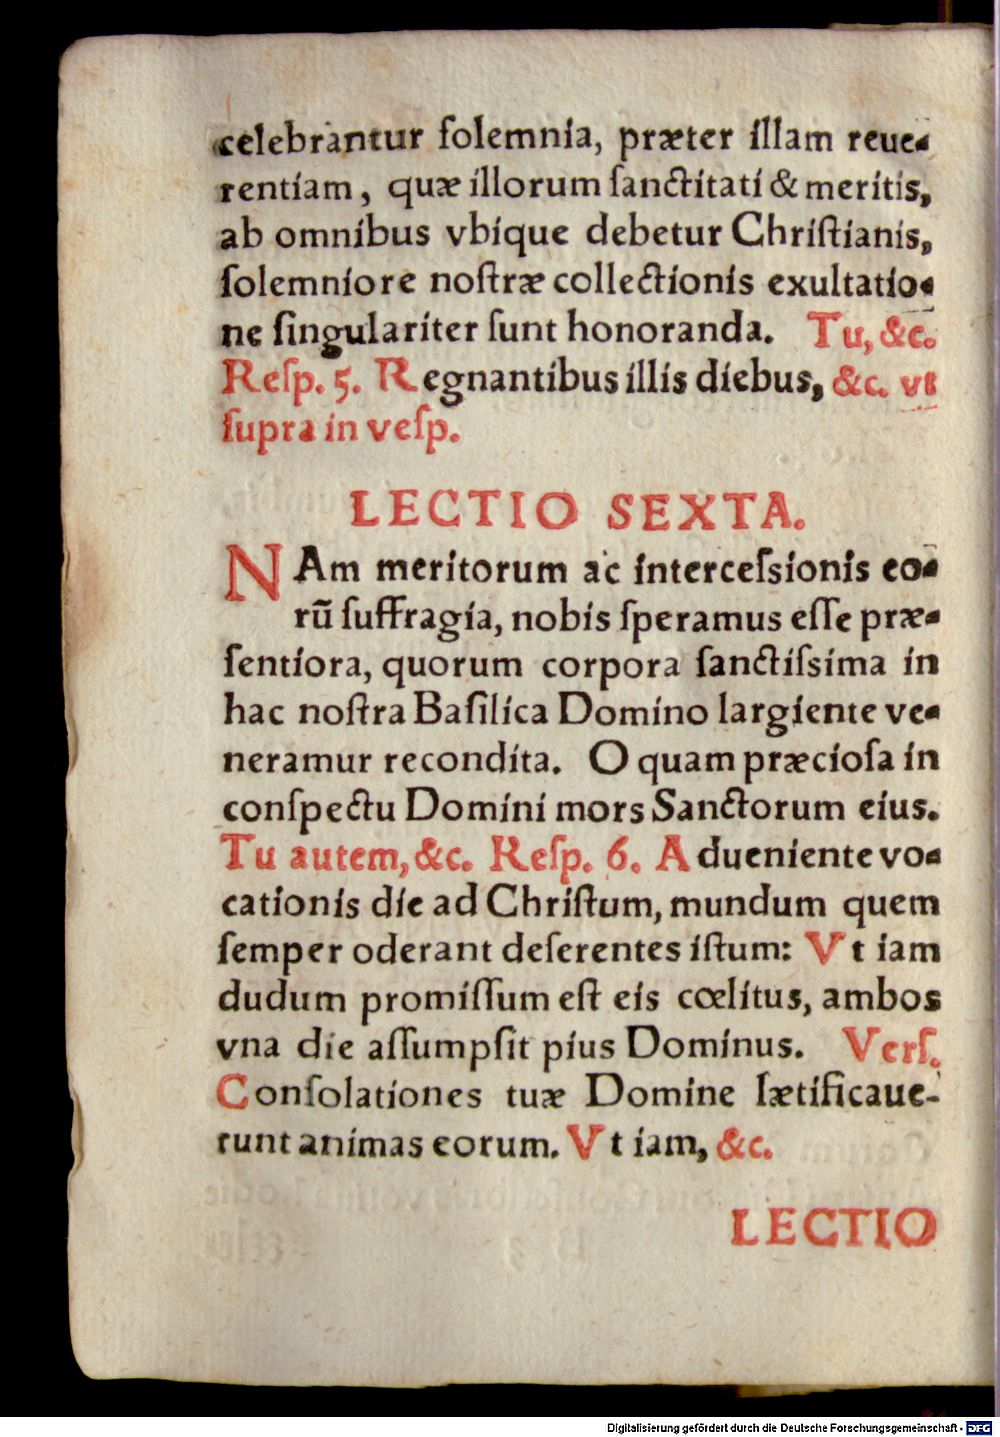 celebrantur ſolemnia, præter illam reue-
rentiam, quæ illorum ſanctitati & meritis,
ab omnibus vbique debetur Chriſtianis,
ſolemniore noſtræ collectionis exultatio-
ne ſingulariter ſunt honoranda. Tu, &c.
Reſp. 5. Regnantibus illis diebus, &c. vt
ſupra in veſp.
LECTIO SEXTA.
NAm meritorum ac interceſsionis eo-
rū ſuffragia, nobis ſperamus eſſe præ-
ſentiora, quorum corpora ſanctiſsima in
hac noſtra Baſilica Domino largiente ve-
neramur recondita. O quam præcioſa in
conſpectu Domini mors Sanctorum eius.
Tu autem, &c. Reſp. 6. Adueniente vo-
cationis die ad Chriſtum, mundum quem
ſemper oderant deſerentes iſtum: Vt iam
dudum promiſſum eſt eis cœlitus, ambos
vna die aſſumpſit pius Dominus. Verſ.
Conſolationes tuæ Domine lætificaue-
runt animas eorum. Vt iam, &c.
LECTIO
Digitalisierung gefördert durch die Deutsche Forschungsgemeinschaft - DFG